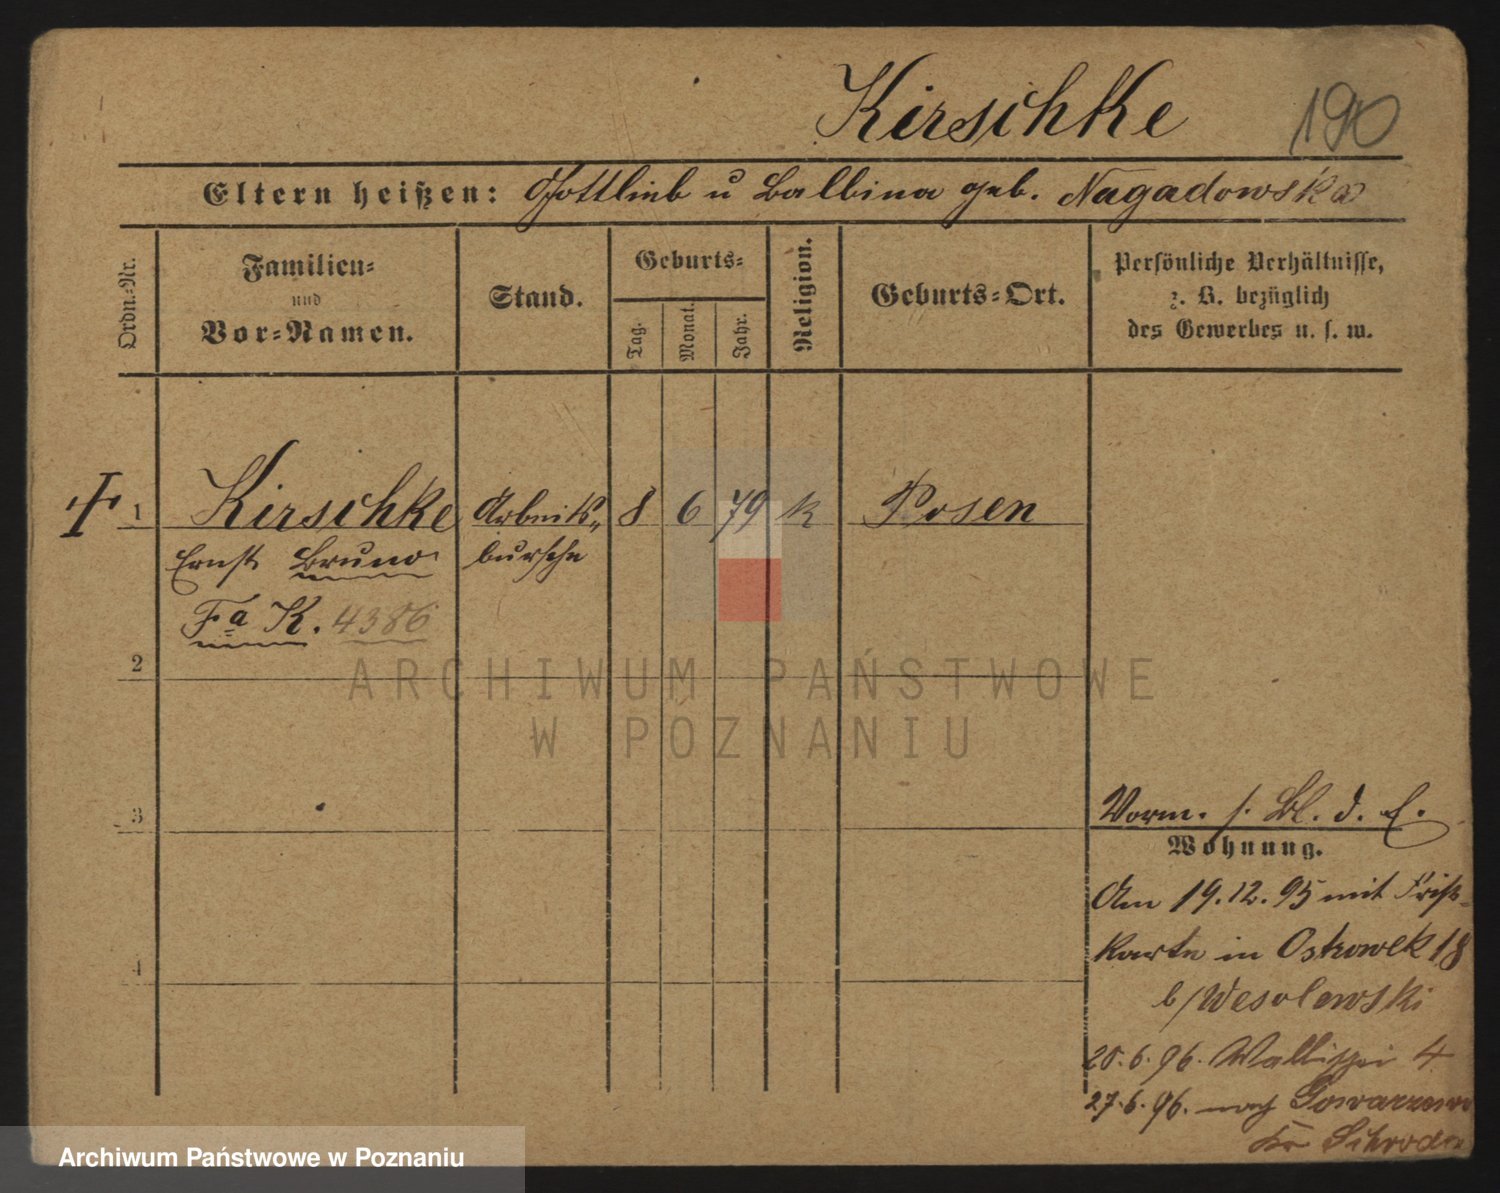 Kirschke 190
Eltern heißen: Gottlieb u Balbina geb. Nagadowska
Ordn.-Nr.
Familien-
und
Vor-Namen.
Stand.
Geburts-
Tag.
Monat.
Jahr.
Religion.
Geburts-Ort.
Persönliche Verhältnisse,
z. B. bezüglich
des Gewerbes u. s. w.
1 Kirschke Arbeits- 8 6 79 k Posen
Ernst Bruno bursche
Fa K. 4386
2
3
4
Vorm. s. Bl. d. E.
Wohnung.
Am 19.12.95 mit Frist-
karte in Ostrowek 18
b/Wesolowski
20.6.96. Wallischei 4
27.6.96. nach Gowarzewo
Kr Schroda
ARCHIWUM PAŃSTWOWE
W POZNANIU
Archiwum Państwowe w Poznaniu